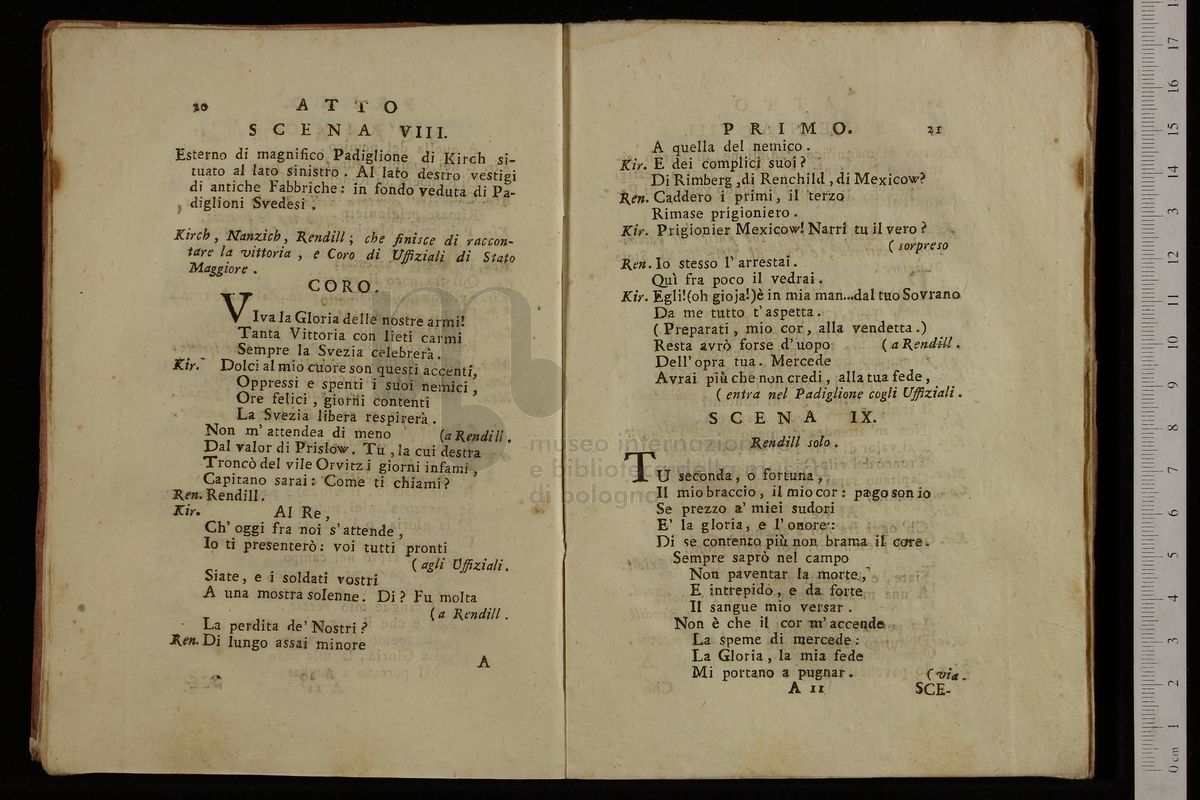 20 ATTO
SCENA VIII.
Esterno di magnifico Padiglione di Kirch si-
tuato al lato sinistro. Al lato destro vestigi
di antiche Fabbriche: in fondo veduta di Pa-
diglioni Svedesi.
Kirch, Nanzich, Rendill; che finisce di raccon-
tare la vittoria, e Coro di Uffiziali di Stato
Maggiore.
CORO.
VIva la Gloria delle nostre armi!
Tanta Vittoria con lieti carmi
Sempre la Svezia celebrerà.
Kir. Dolci al mio cuore son questi accenti,
Oppressi e spenti i suoi nemici,
Ore felici, giorni contenti
La Svezia libera respirerà.
Non m'attendea di meno (a Rendill.
Dal valor di Prislow. Tu, la cui destra
Troncò del vile Orvitz i giorni infami,
Capitano sarai: Come ti chiami?
Ren. Rendill.
Kir. Al Re,
Ch'oggi fra noi s'attende,
Io ti presenterò: voi tutti pronti
(agli Uffiziali.
Siate, e i soldati vostri
A una mostra solenne. Di? Fu molta
(a Rendill.
La perdita de' Nostri?
Ren. Di lungo assai minore
A
PRIMO. 21
A quella del nemico.
Kir. E dei complici suoi?
Di Rimberg, di Renchild, di Mexicow?
Ren. Caddero i primi, il terzo
Rimase prigioniero.
Kir. Prigionier Mexicow! Narri tu il vero?
(sorpreso
Ren. Io stesso l'arrestai.
Quì fra poco il vedrai.
Kir. Egli!(oh gioja!)è in mia man...dal tuo Sovrano
Da me tutto t'aspetta.
(Preparati, mio cor, alla vendetta.)
Resta avrò forse d'uopo (a Rendill.
Dell'opra tua. Mercede
Avrai più che non credi, alla tua fede,
(entra nel Padiglione cogli Uffiziali.
SCENA IX.
Rendill solo.
TU seconda, o fortuna,
Il mio braccio, il mio cor: pago son io
Se prezzo a' miei sudori
E' la gloria, e l'onore:
Di se contento più non brama il core.
Sempre saprò nel campo
Non paventar la morte,
E intrepido, e da forte
Il sangue mio versar.
Non è che il cor m'accende
La speme di mercede:
La Gloria, la mia fede
Mi portano a pugnar. (via.
A 11 SCE-
museo internazionale
e biblioteca della musica
di bologna
0 cm 1 2 3 4 5 6 7 8 9 10 11 12 13 14 15 16 17